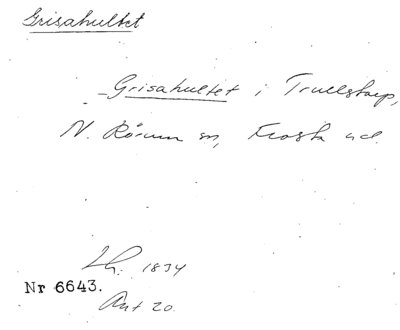 Grisahultet
Grisahultet i Trullstorp,
N. Rörum sn, Frosta hd.
Lh. 1834
Nr 6643.
Ant 20.